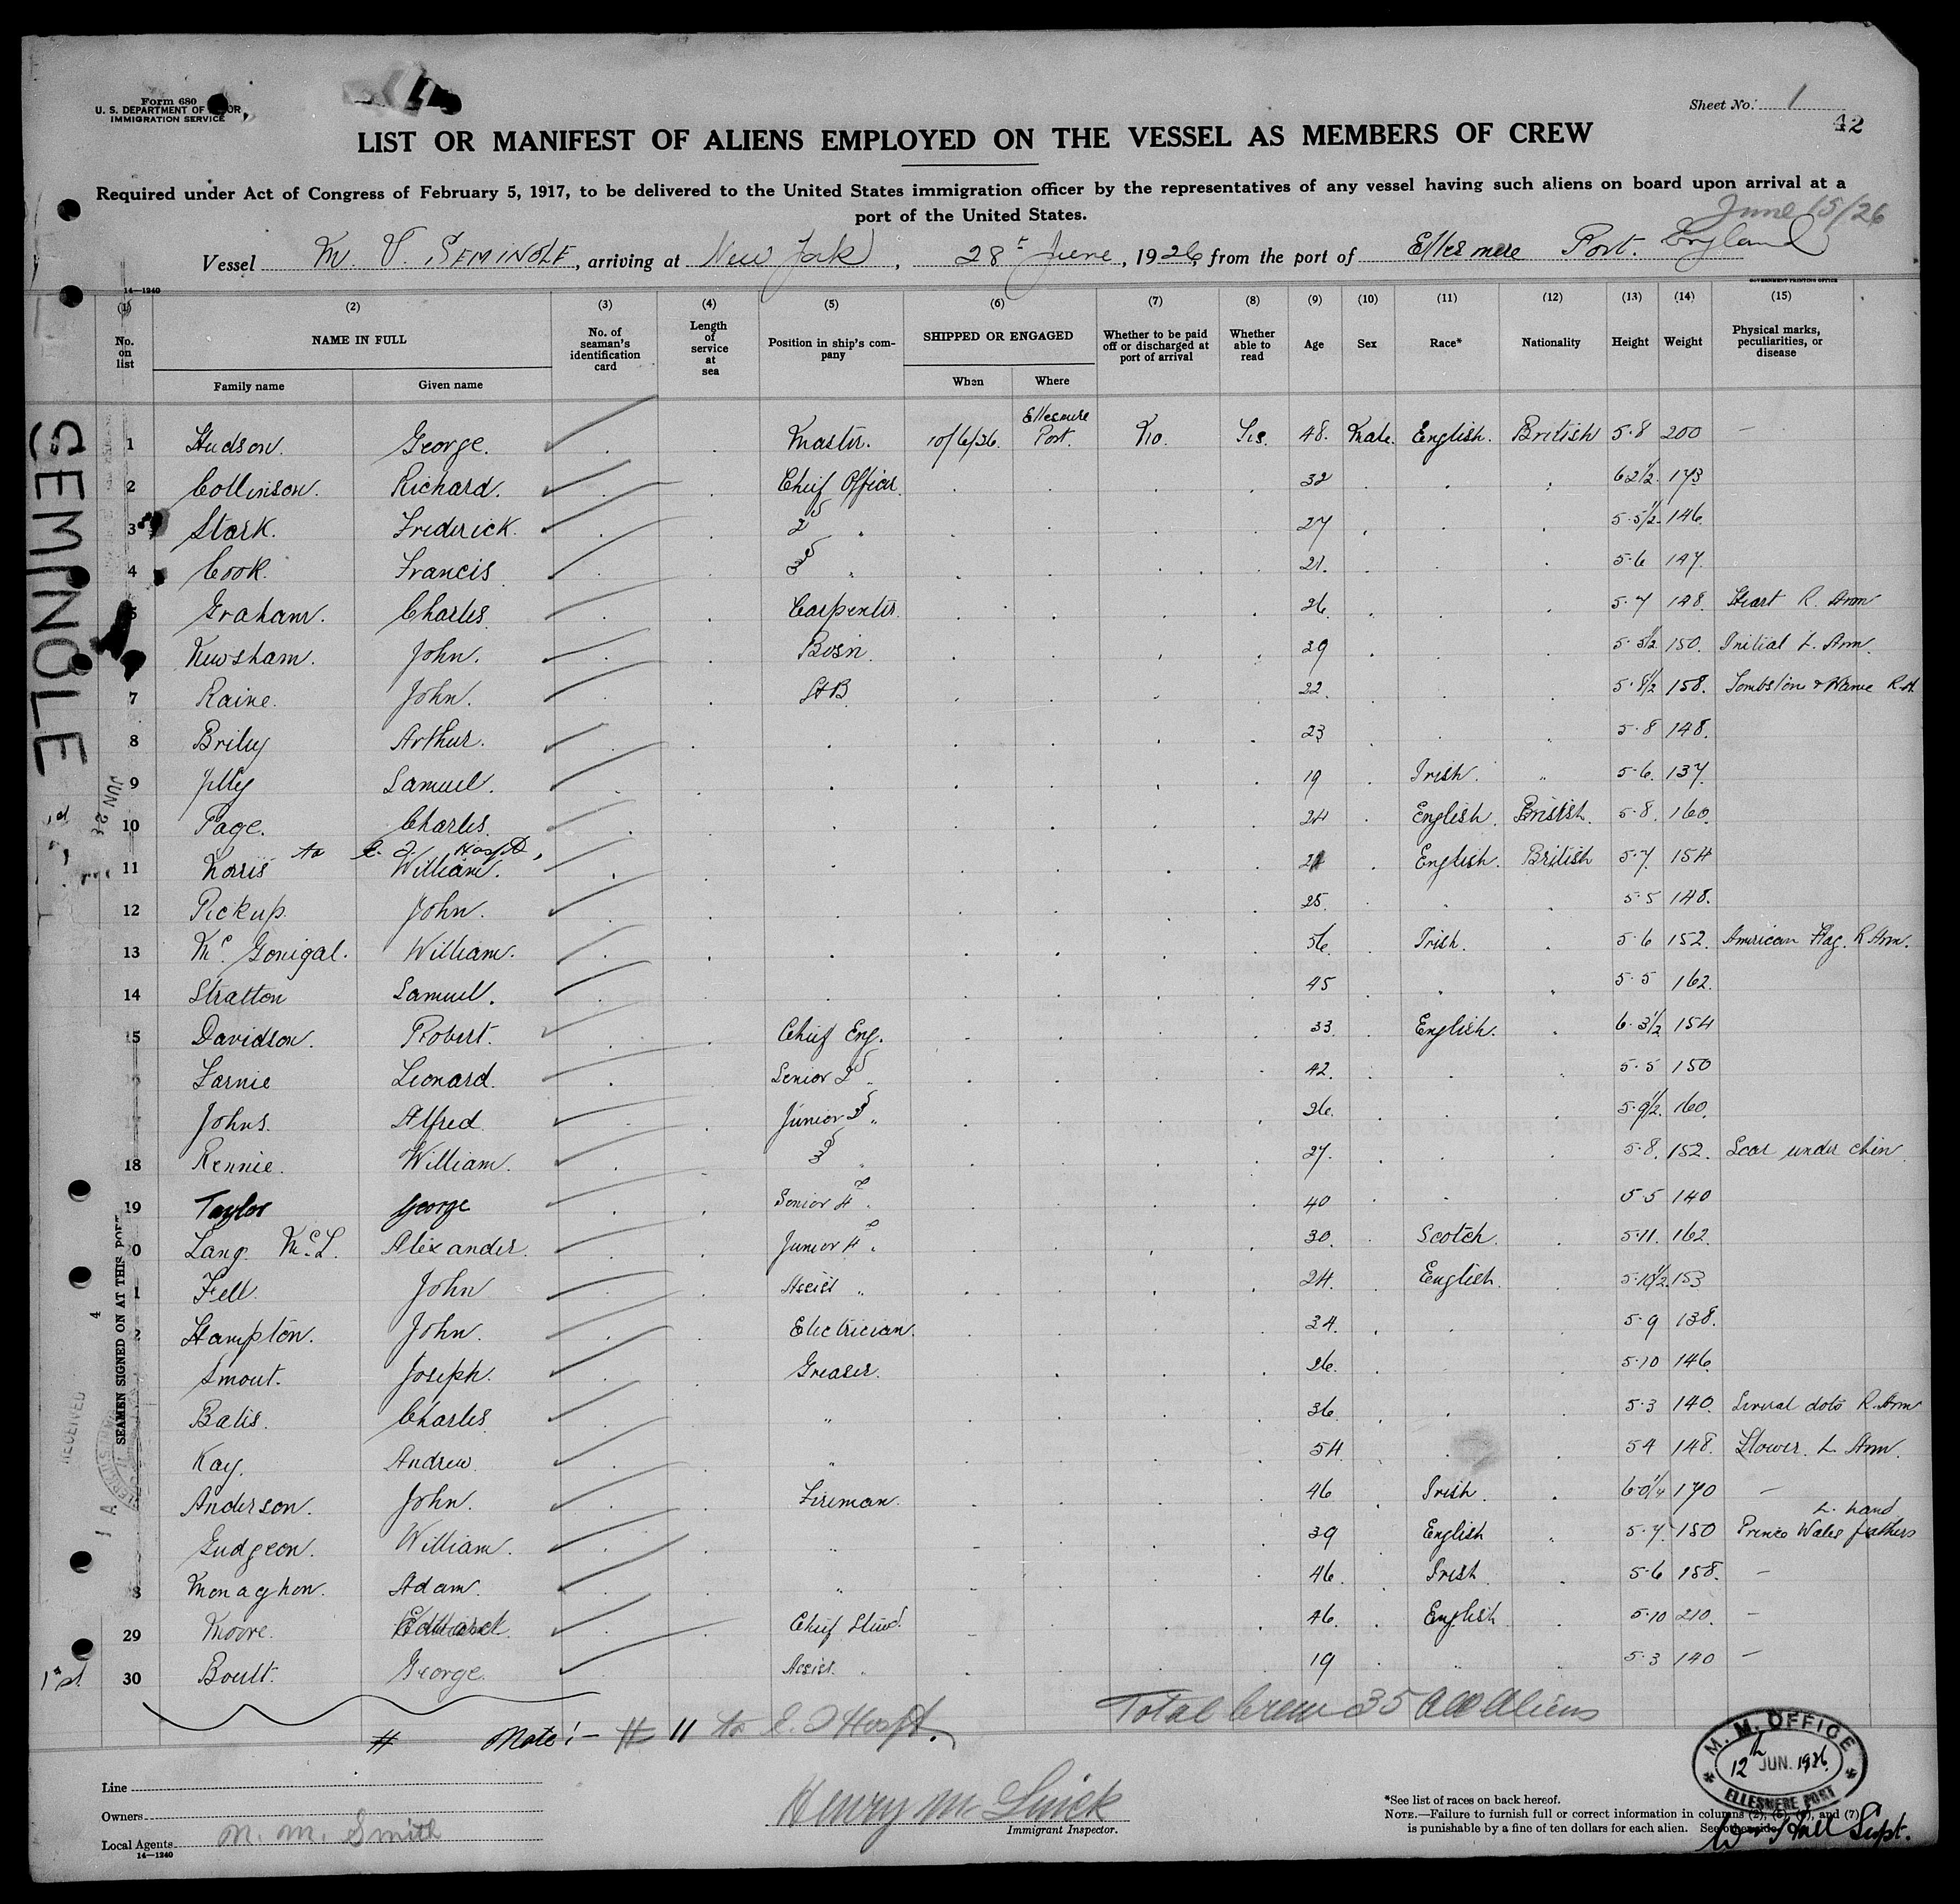 Form 680
U. S. DEPARTMENT OF LABOR
IMMIGRATION SERVICE
Sheet No. 1
42
LIST OR MANIFEST OF ALIENS EMPLOYED ON THE VESSEL AS MEMBERS OF CREW
Required under Act of Congress of February 5, 1917, to be delivered to the United States immigration officer by the representatives of any vessel having such aliens on board upon arrival at a
port of the United States.
June 15/26
Vessel M. V. SEMINOLE, arriving at New York, 28th June, 1926, from the port of Ellesmere Port. England
14—1240
GOVERNMENT PRINTING OFFICE
(1) (2) (3) (4) (5) (6) (7) (8) (9) (10) (11) (12) (13) (14) (15)
No. on list NAME IN FULL No. of seaman's identification card Length of service at sea Position in ship's company SHIPPED OR ENGAGED Whether to be paid off or discharged at port of arrival Whether able to read Age Sex Race* Nationality Height Weight Physical marks, peculiarities, or disease
Family name Given name When Where
1 Hudson. George. Master. 10/6/26. Ellesmere Port. No. Yes. 48. Male. English. British 5·8 200 —
2 Collinson. Richard. Chief Officer. 32 6 2½. 173
3 Stark. Frederick. 2nd " 27 5·5½. 146
4 Cook. Francis. 3rd " 21. 5·6 147.
5 Graham. Charles. Carpenter. 26. 5·7 148. Heart R. Arm
Kewsham. John. Bosn. 29 5·5½ 150. Initial L. Arm.
7 Raine. John. AB. 22. 5·8½ 158. Tombstone & Name R.A.
8 Briley Arthur. 23 5·8 148.
9 Samuel. 19 Irish. " 5·6. 137.
10 Page. Charles. 24 English. British. 5·8. 160.
to E. I. Hospt.
11 Norris William. English. British 5·7. 154
12 Pickup. John. 25. 5·5 148.
13 McGonigal. William. 56. Irish. 5·6 152. American Flag. R Arm.
14 Stratton Samuel. 45 5·5 162.
15 Davidson. Robert. Chief Eng. 33. English. 6·3½ 154
Larnie Leonard. Senior 2nd " 42. 5·5 150
Johns. Alfred. Junior 2nd " 26. 5·9½. 160.
18 Rennie. William. 3rd " 27. 5·8. 152. Scar under chin
19 Taylor George Senior 4th " 40 5·5 140
20 Lang. McL. Alexander. Junior 4th " 30. Scotch. 5·11. 162.
1 Fell. John Assist " 24. English. 5·10½. 153
2 Hampton. John. Electrician. 34. 5·9 138.
Smout. Joseph. Greaser. 26. 5·10 146.
Balis. Charles " 36. 5·3 140. Several dots R. Arm
Kay. Andrew. " 54. 5 4 148. Flower. L Arm.
Anderson. John. Fireman. 46 Irish. 6·0¼ 170 —
Gudgeon. William. " 39 English 5·7. 150 Prince Wales feathers L. hand
8 Monaghan. Adam. " 46. Irish. 5·6 158. —
29 Moore. Edward. Chief Stewd. 46. English. 5·10 210. —
30 Boult. George. Assist. " 19 5·3 140 —
SEMINOLE
JUN 2
SEAMEN SIGNED ON AT THIS PORT
4
RECEIVED
1st
# Note! – # 11 to E. I Hospt.
Total Crew 35 All Aliens
M. M. OFFICE
12th JUN. 1926
ELLESMERE PORT
Supt.
Line
Owners
Local Agents M. M. Smith
14—1240
Henry M.
Immigrant Inspector.
*See list of races on back hereof.
NOTE.—Failure to furnish full or correct information in columns (2), (5), (6), and (7)
is punishable by a fine of ten dollars for each alien. See other side.